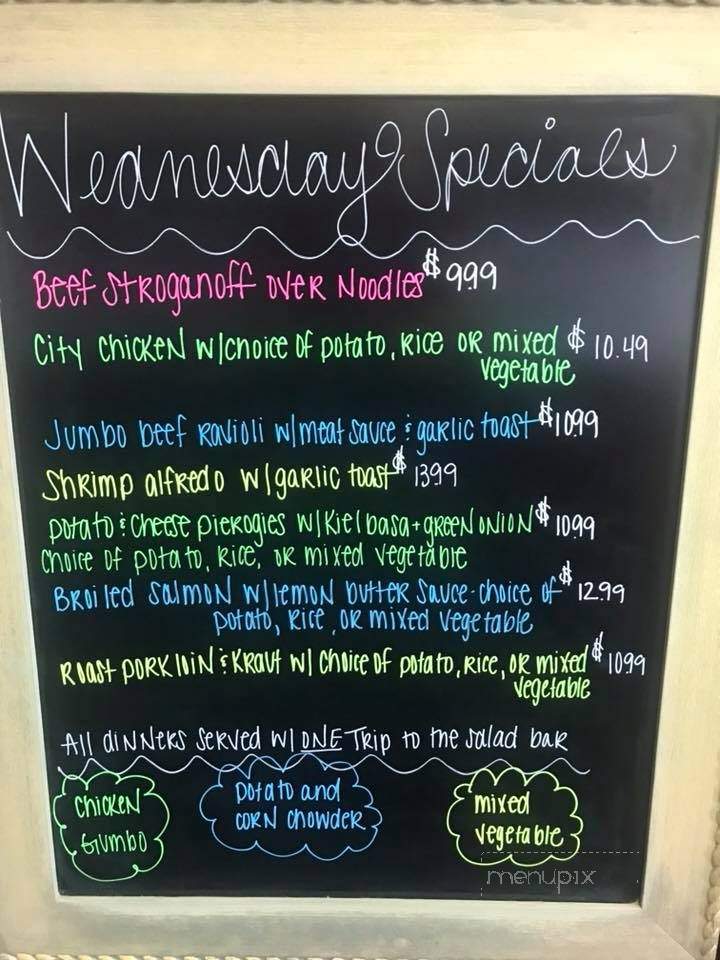 Wednesday Specials
Beef Stroganoff over Noodles $9.99
City Chicken w/choice of potato, Rice or mixed $10.49
vegetable
Jumbo beef Ravioli w/meat sauce & garlic toast $10.99
Shrimp alfredo w/garlic toast $13.99
potato & cheese pierogies w/Kielbasa + green onion $10.99
choice of potato, rice, or mixed vegetable
Broiled Salmon w/lemon butter sauce-choice of $12.99
potato, Rice, or mixed vegetable
Roast pork loin & kraut w/ choice of potato, rice, or mixed $10.99
vegetable
All dinners served w/ ONE Trip to the salad bar
chicken
Gumbo
potato and
corn chowder
mixed
vegetable
menupix